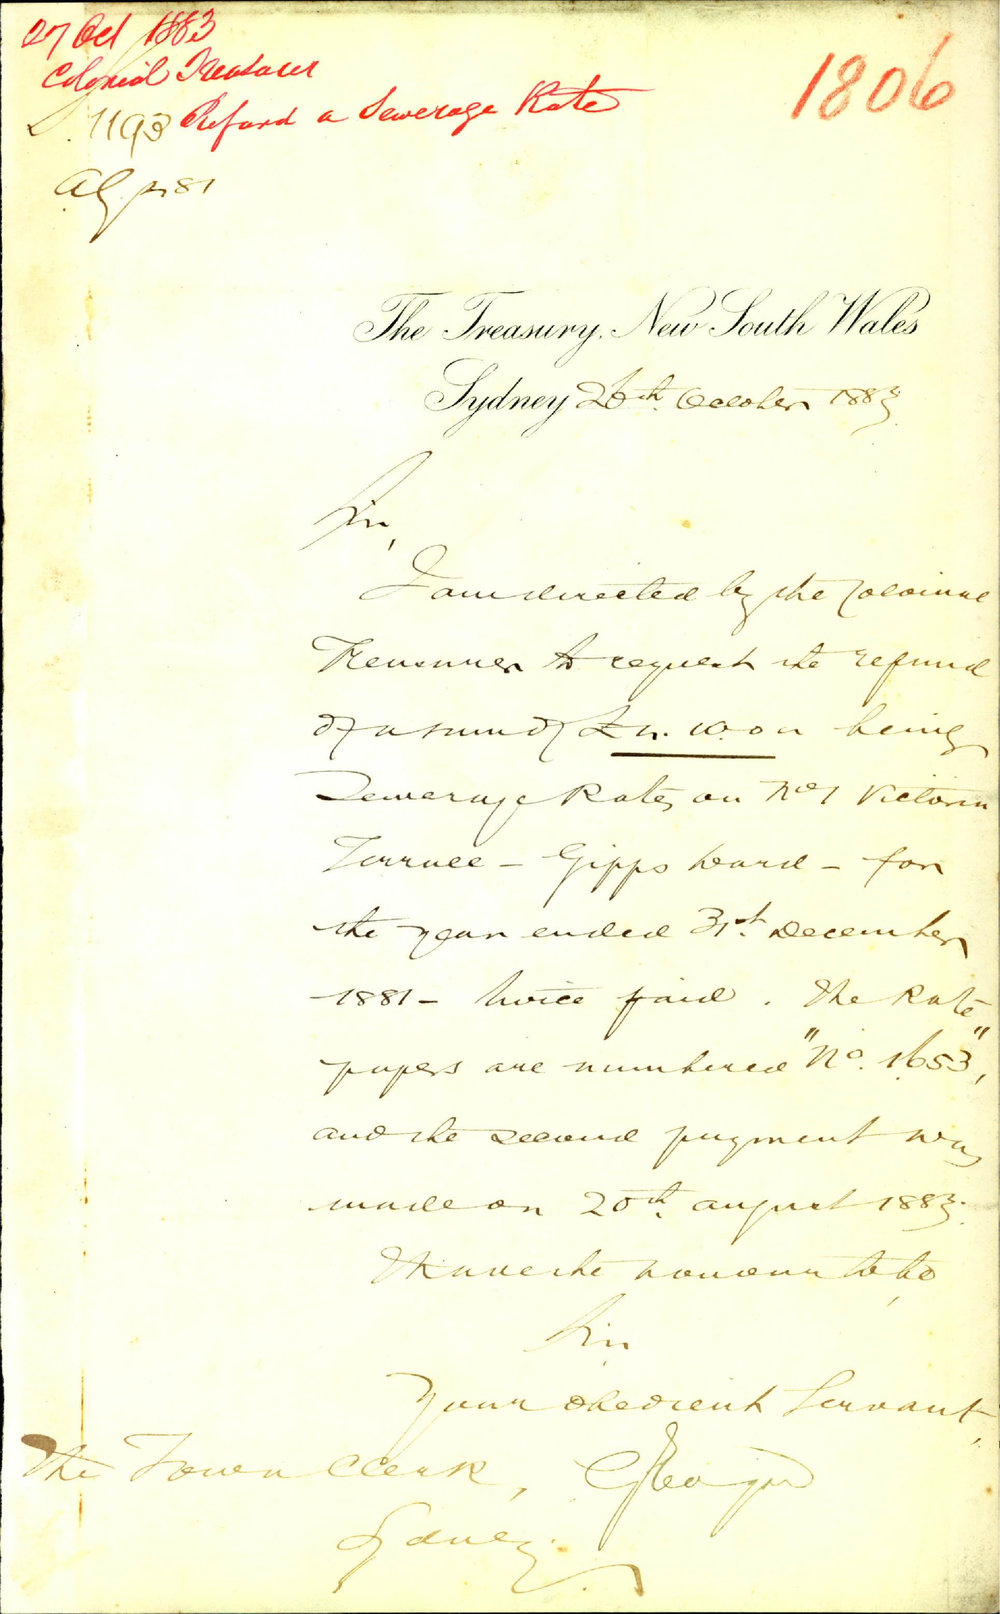 27 Oct 1883
Colonial Treasurer
1193 Refund a Sewerage Rate
1806
The Treasury, New South Wales
Sydney 26th October 1883
Sir,
I am directed by the Colonial
Treasurer to request the refund
of a sum of being
Sewerage Rates on No 1 Victoria
Terrace – Gipps Ward – for
the year ended 31st December
1881 – twice paid. The Rate
papers are numbered "No. 1653",
and the second payment was
made on 20th August 1883.
I have the honour to be
Sir
Your obedient Servant,
The Town Clerk,
Sydney.